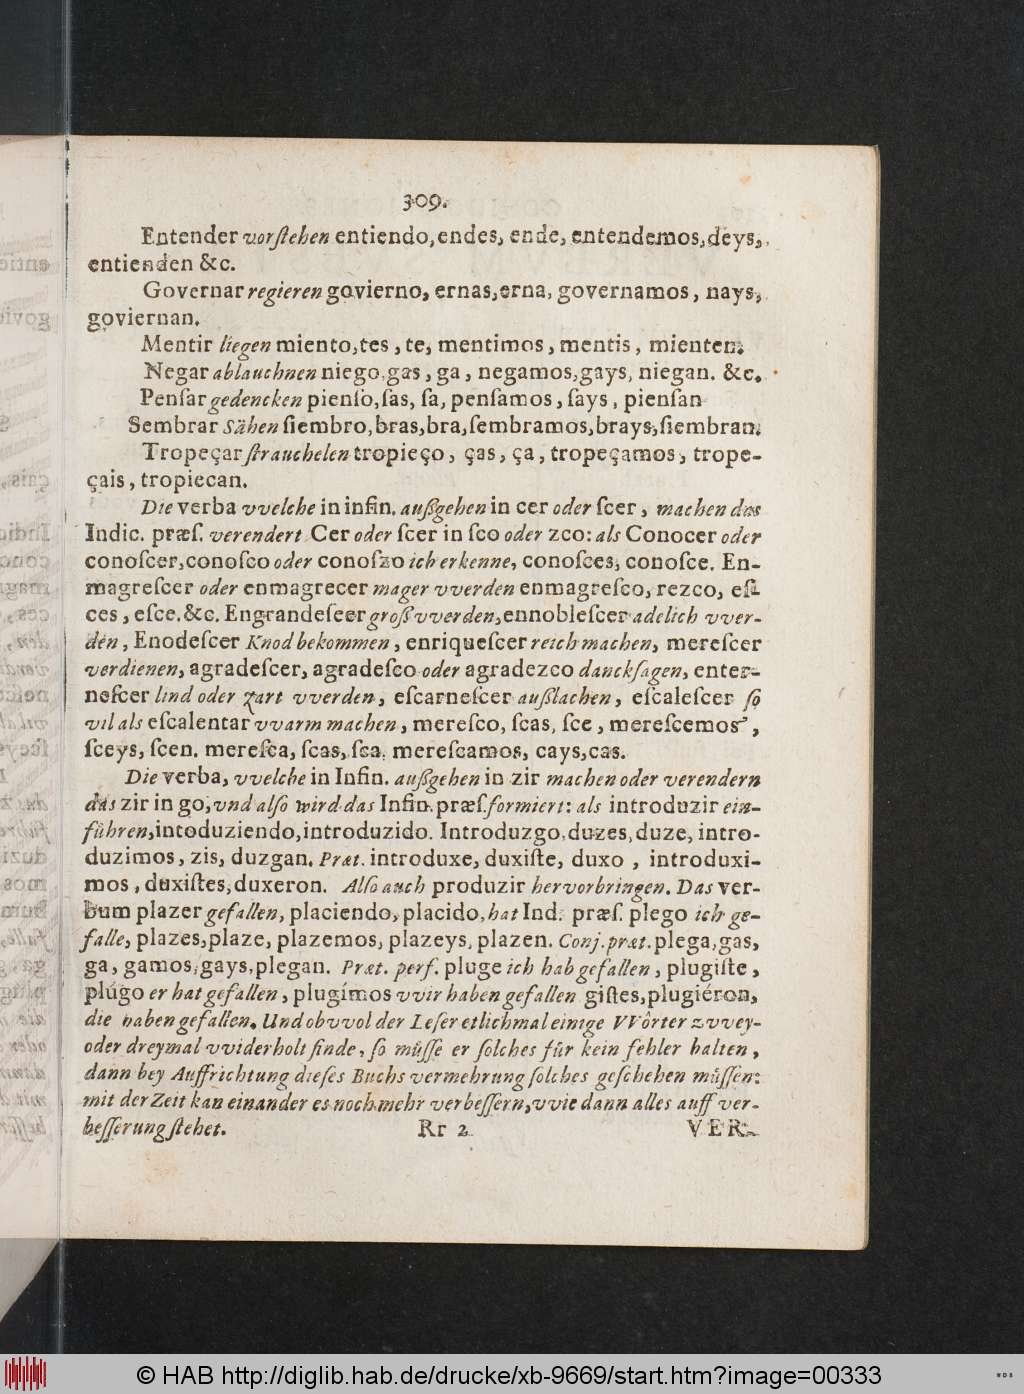 309.
Entender vorſtehen entiendo, endes, ende, entendemos, deys,
entienden &c.
Governar regieren govierno, ernas, erna, governamos, nays,
goviernan.
Mentir liegen miento, tes, te, mentimos, mentis, mienten.
Negar ablauchnen niego, gas, ga, negamos, gays, niegan. &c.
Penſar gedencken pienſo, ſas, ſa, penſamos, ſays, pienſan
Sembrar Sähen ſiembro, bras, bra, ſembramos, brays, ſiembran.
Tropeçar ſtrauchelen tropieço, ças, ça, tropeçamos, trope-
çais, tropiecan.
Die verba vvelche in infin. außgehen in cer oder ſcer, machen das
Indic. præſ. verendert Cer oder ſcer in ſco oder zco: als Conocer oder
conoſcer, conoſco oder conoſzo ich erkenne, conoſces, conoſce. En-
magreſcer oder enmagrecer mager vverden enmagreſco, rezco, eſ
ces, eſce. &c. Engrandeſeer groß vverden, ennobleſcer adelich vver-
den, Enodeſcer Knod bekommen, enriqueſcer reich machen, mereſcer
verdienen, agradeſcer, agradeſco oder agradezco danckſagen, enter-
neſcer lind oder zart vverden, eſcarneſcer außlachen, eſcaleſcer ſo
vil als eſcalentar vvarm machen, mereſco, ſcas, ſce, mereſcemos,
ſceys, ſcen. mereſca, ſcas, ſca. mereſcamos, cays, cas.
Die verba, vvelche in Infin. außgehen in zir machen oder verendern
das zir in go, vnd alſo wird das Infin. præſ. formiert: als introduzir ein-
führen, intoduziendo, introduzido. Introduzgo, duzes, duze, intro-
duzimos, zis, duzgan. Præt. introduxe, duxiſte, duxo, introduxi-
mos, duxiſtes, duxeron. Alſo auch produzir hervorbringen. Das ver-
bum plazer gefallen, placiendo, placido, hat Ind. præſ. plego ich ge-
falle, plazes, plaze, plazemos, plazeys, plazen. Conj. præt. plega, gas,
ga, gamos, gays, plegan. Præt. perf. pluge ich hab gefallen, plugiſte,
plúgo er hat gefallen, plugímos vvir haben gefallen giſtes, plugiéron,
die haben gefallen. Und obvvol der Leſer etlichmal einige VVörter zvvey-
oder dreymal vviderholt finde, ſo müſſe er ſolches für kein fehler halten,
dann bey Auffrichtung dieſes Buchs vermehrung ſolches geſchehen müſſen:
mit der Zeit kan einander es noch mehr verbeſſern, vvie dann alles auff ver-
beſſerung ſtehet.
Rr 2
VER-
© HAB http://diglib.hab.de/drucke/xb-9669/start.htm?image=00333